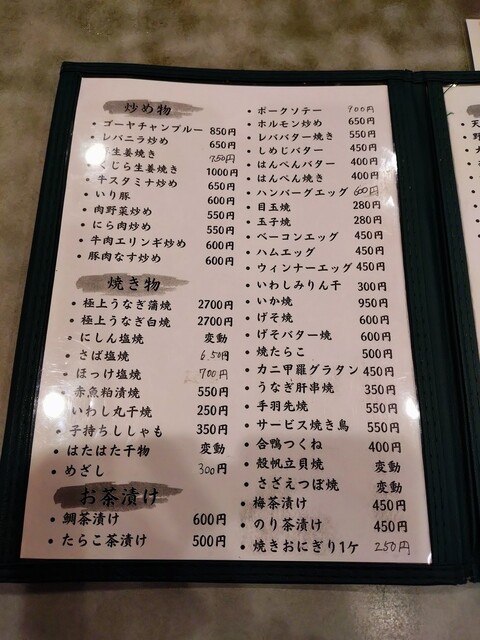 炒め物
・ゴーヤチャンプルー 850円
・レバニラ炒め 650円
生姜焼き 750円
くじら生姜焼き 1000円
・牛スタミナ炒め 650円
・いり豚 600円
・肉野菜炒め 550円
・にら肉炒め 550円
・牛肉エリンギ炒め 600円
・豚肉なす炒め 600円
焼き物
・極上うなぎ蒲焼 2700円
・極上うなぎ白焼 2700円
・にしん塩焼 変動
・さば塩焼 650円
・ほっけ塩焼 700円
・赤魚粕漬焼 550円
・いわし丸干焼 250円
・子持ちししゃも 350円
・はたはた干物 変動
・めざし 300円
お茶漬け
・鯛茶漬け 600円
・たらこ茶漬け 500円
・ポークソテー 900円
・ホルモン炒め 650円
・レババター焼き 550円
・しめじバター 450円
・はんぺんバター 400円
・はんぺん焼き 400円
・ハンバーグエッグ 600円
・目玉焼 280円
・玉子焼 280円
・ベーコンエッグ 450円
・ハムエッグ 450円
・ウィンナーエッグ 450円
・いわしみりん干 300円
・いか焼 950円
・げそ焼 600円
・げそバター焼 600円
・焼たらこ 500円
・カニ甲羅グラタン 450円
・うなぎ肝串焼 350円
・手羽先焼 550円
・サービス焼き鳥 550円
・合鴨つくね 400円
・殻帆立貝焼 変動
・さざえつぼ焼 変動
・梅茶漬け 450円
・のり茶漬け 450円
・焼きおにぎり1ケ 250円